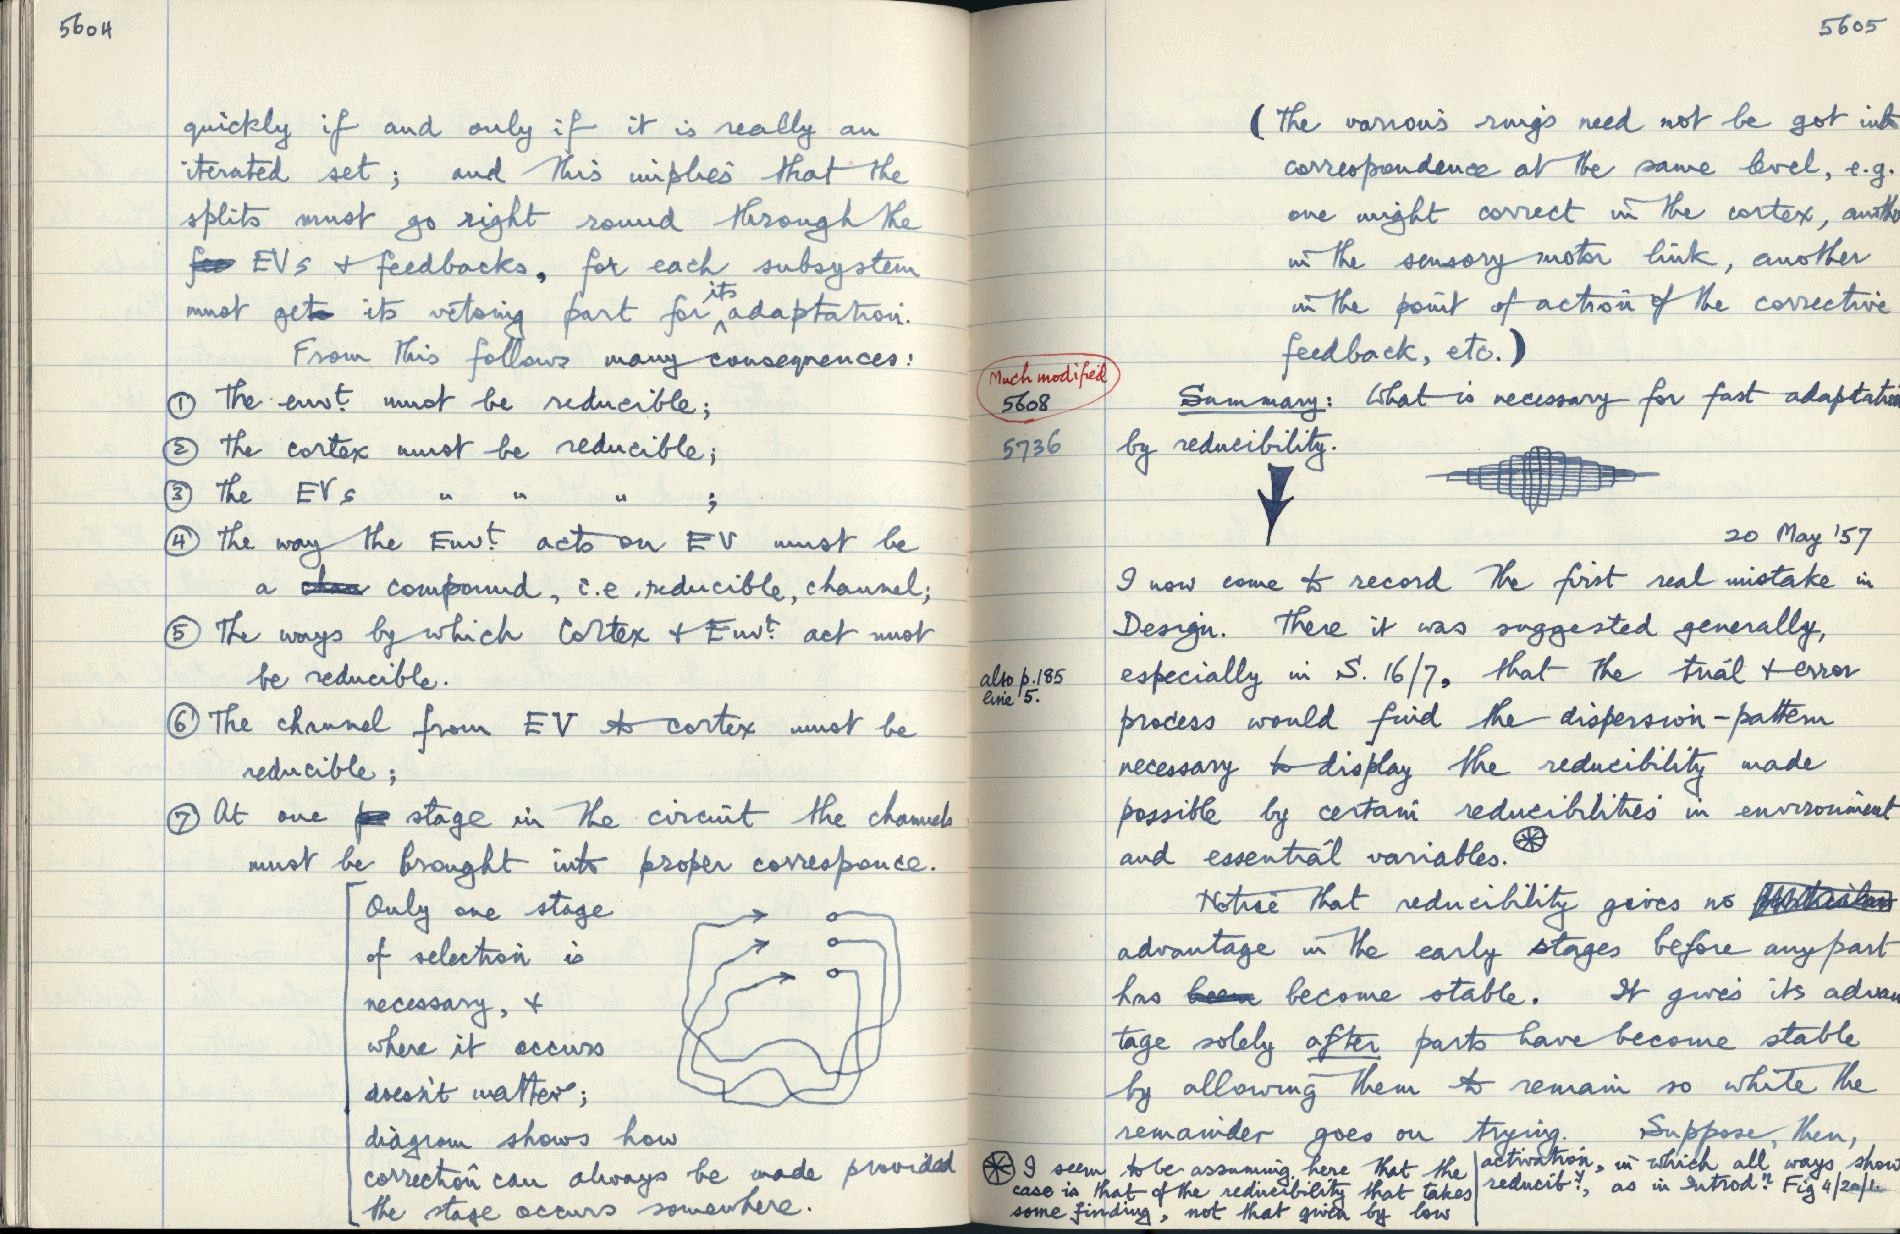 5604
quickly if and only if it is really an
iterated set; and this implies that the
splits must go right round through the
EVs & feedbacks, for each subsystem
must get its vetoing part for its adaptation.
From this follows many consequences:
① The envt. must be reducible;
② The cortex must be reducible;
③ The EVs " " " ;
④ The way the Envt. acts on EV must be
a compound, i.e. reducible, channel;
⑤ The ways by which Cortex & Envt. act must
be reducible.
⑥ The channel from EV to cortex must be
reducible;
⑦ At one stage in the circuit the channels
must be brought into proper corresponce.
Only one stage
of selection is
necessary, &
where it occurs
doesn't matter;
diagram shows how
correction can always be made provided
the stage occurs somewhere.
5605
(The various rings need not be got into
correspondence at the same level, e.g.
one might correct in the cortex, anothe
in the sensory motor link, another
in the point of action of the corrective
feedback, etc.)
Much modified
5608
Summary: What is necessary for fast adaptation
5736
by reducibility.
20 May '57
I now come to record the first real mistake in
Design. There it was suggested generally,
also p.185
line 5.
especially in S. 16/7, that the trial & error
process would find the dispersion-pattern
necessary to display the reducibility made
possible by certain reducibilities in environment
and essential variables. ⊛
Notice that reducibility gives no
advantage in the early stages before any part
has become stable. It gives its advan
tage solely after parts have become stable
by allowing them to remain so while the
remainder goes on trying. Suppose, then,
⊛ I seem to be assuming here that the
case is that of the reducibility that takes
some finding, not that given by low
activation, in which all ways show
reducibty., as in Introdn. Fig 4/20/1